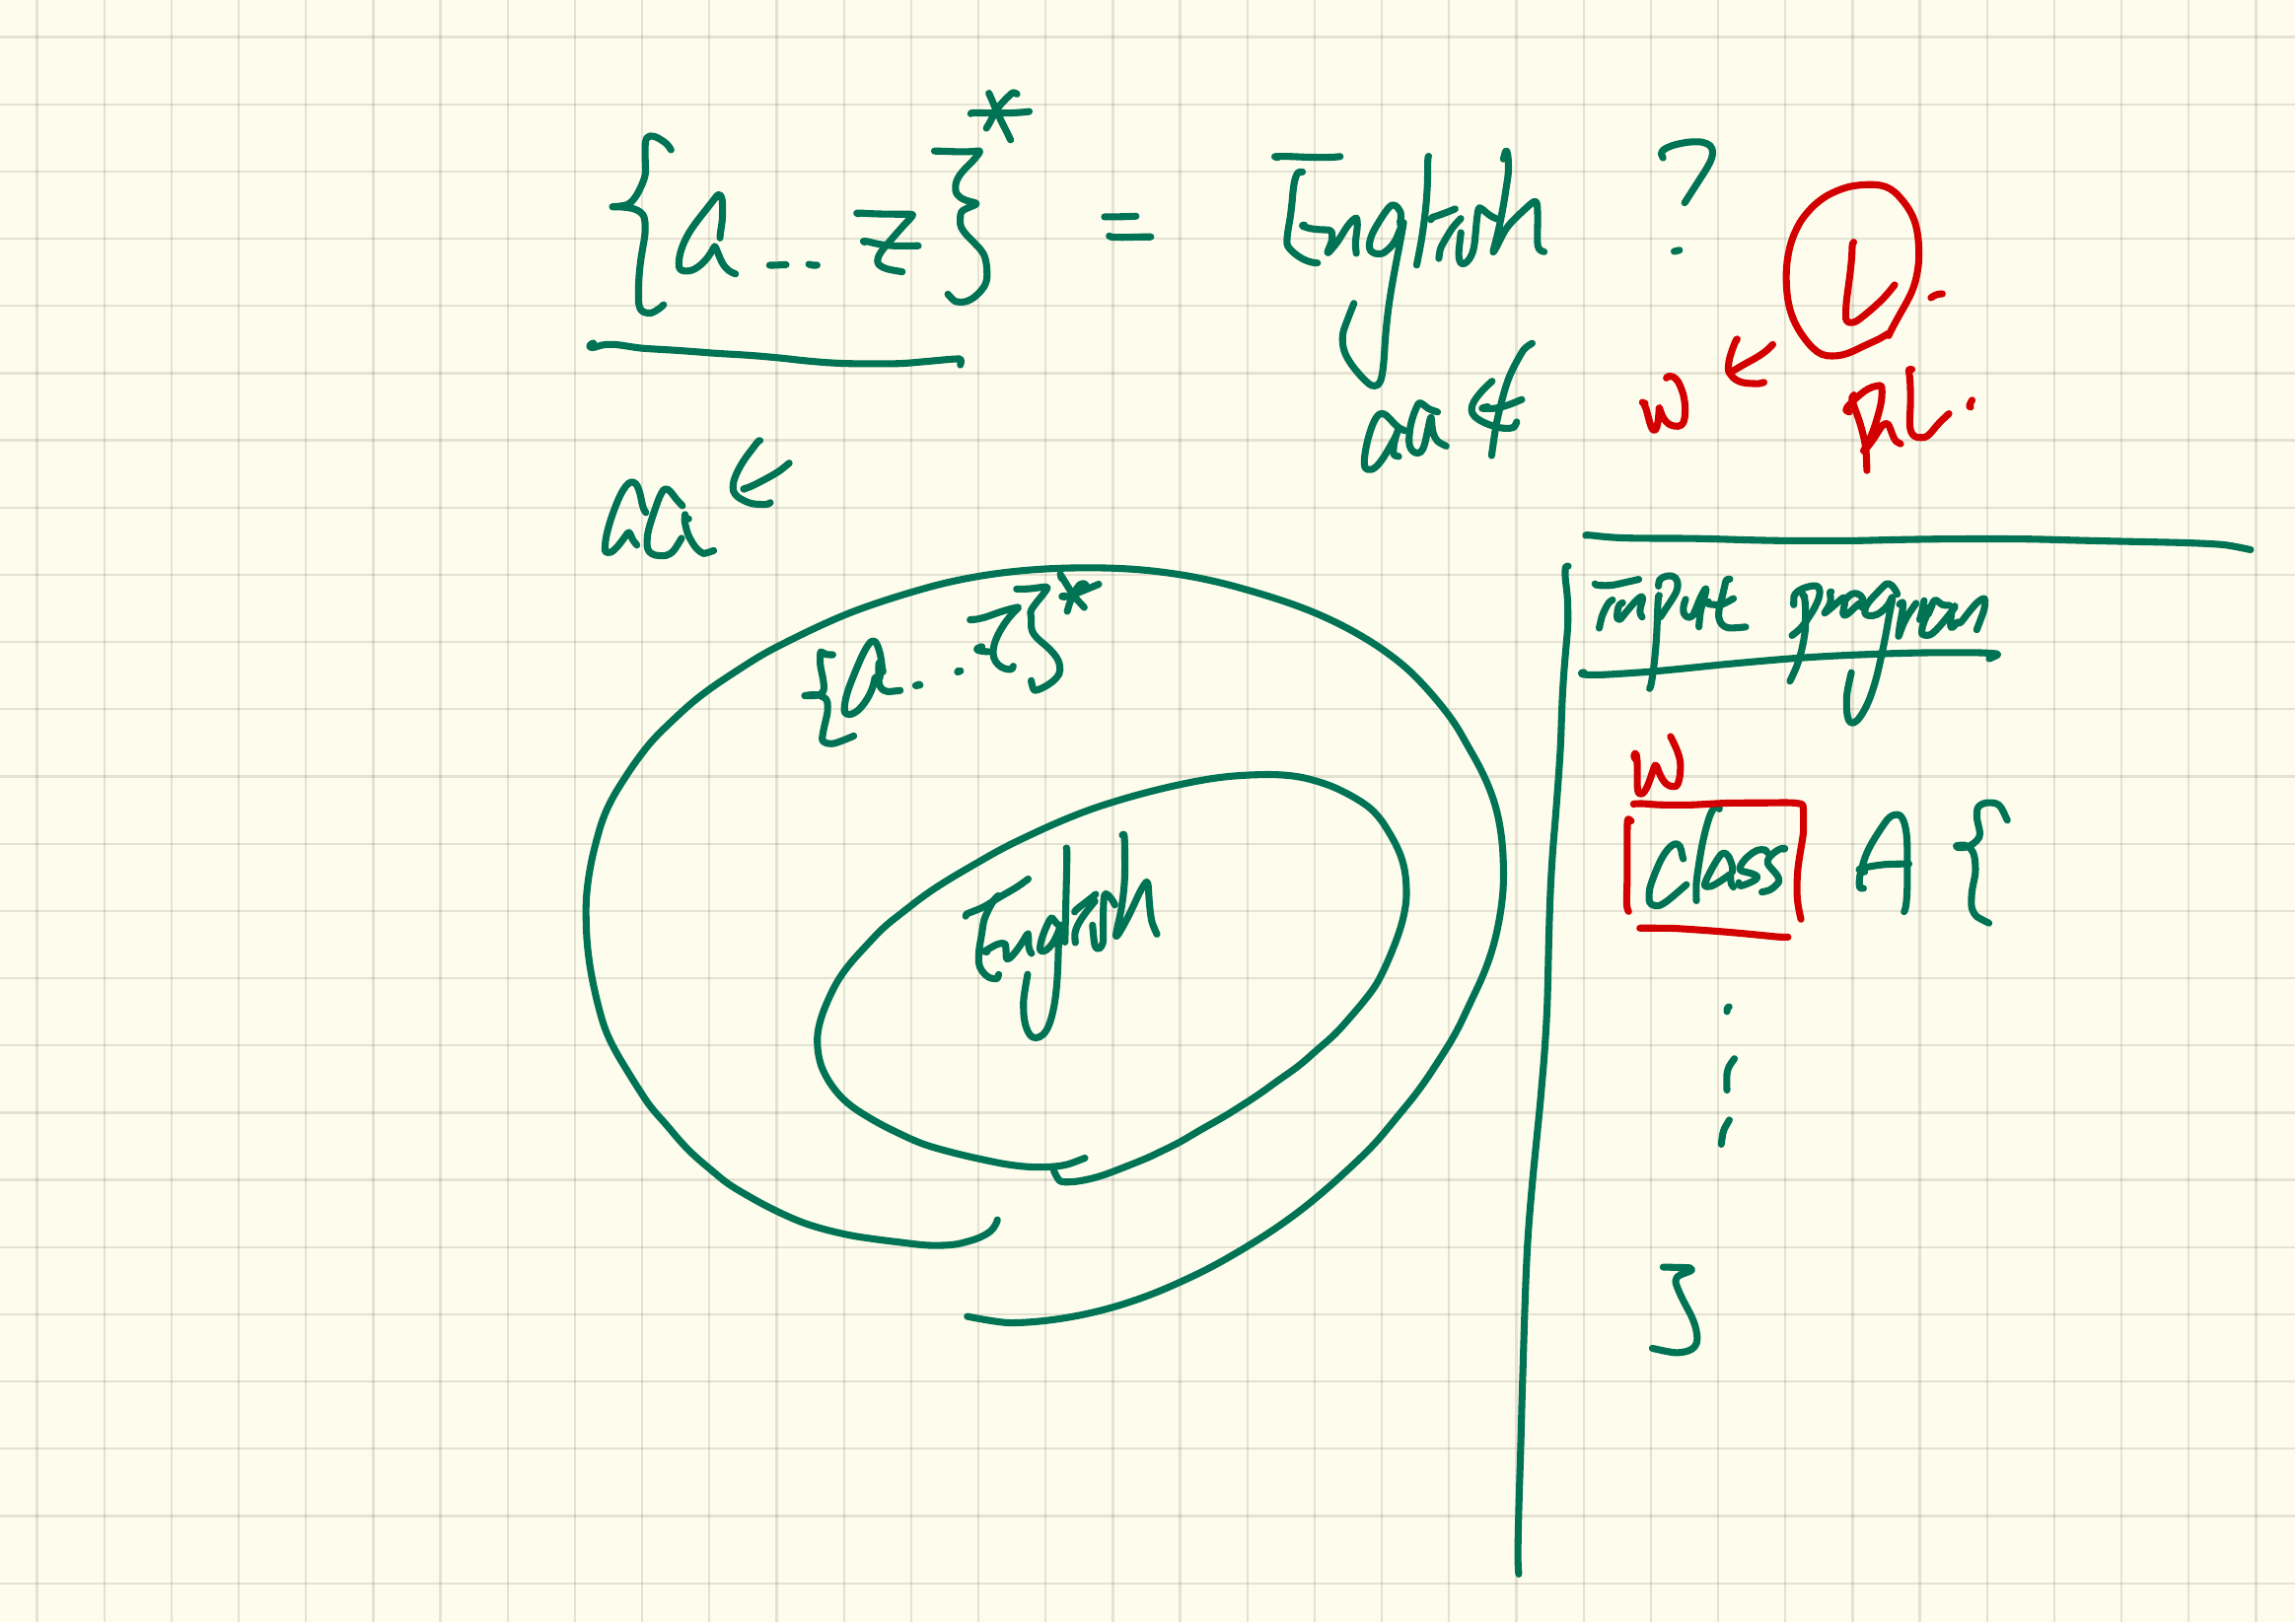 {a...z}* = English ?
L.
w ∈ PL.
aa ∈
aa ∉
{a...z}*
English
input program
w
class A {
}